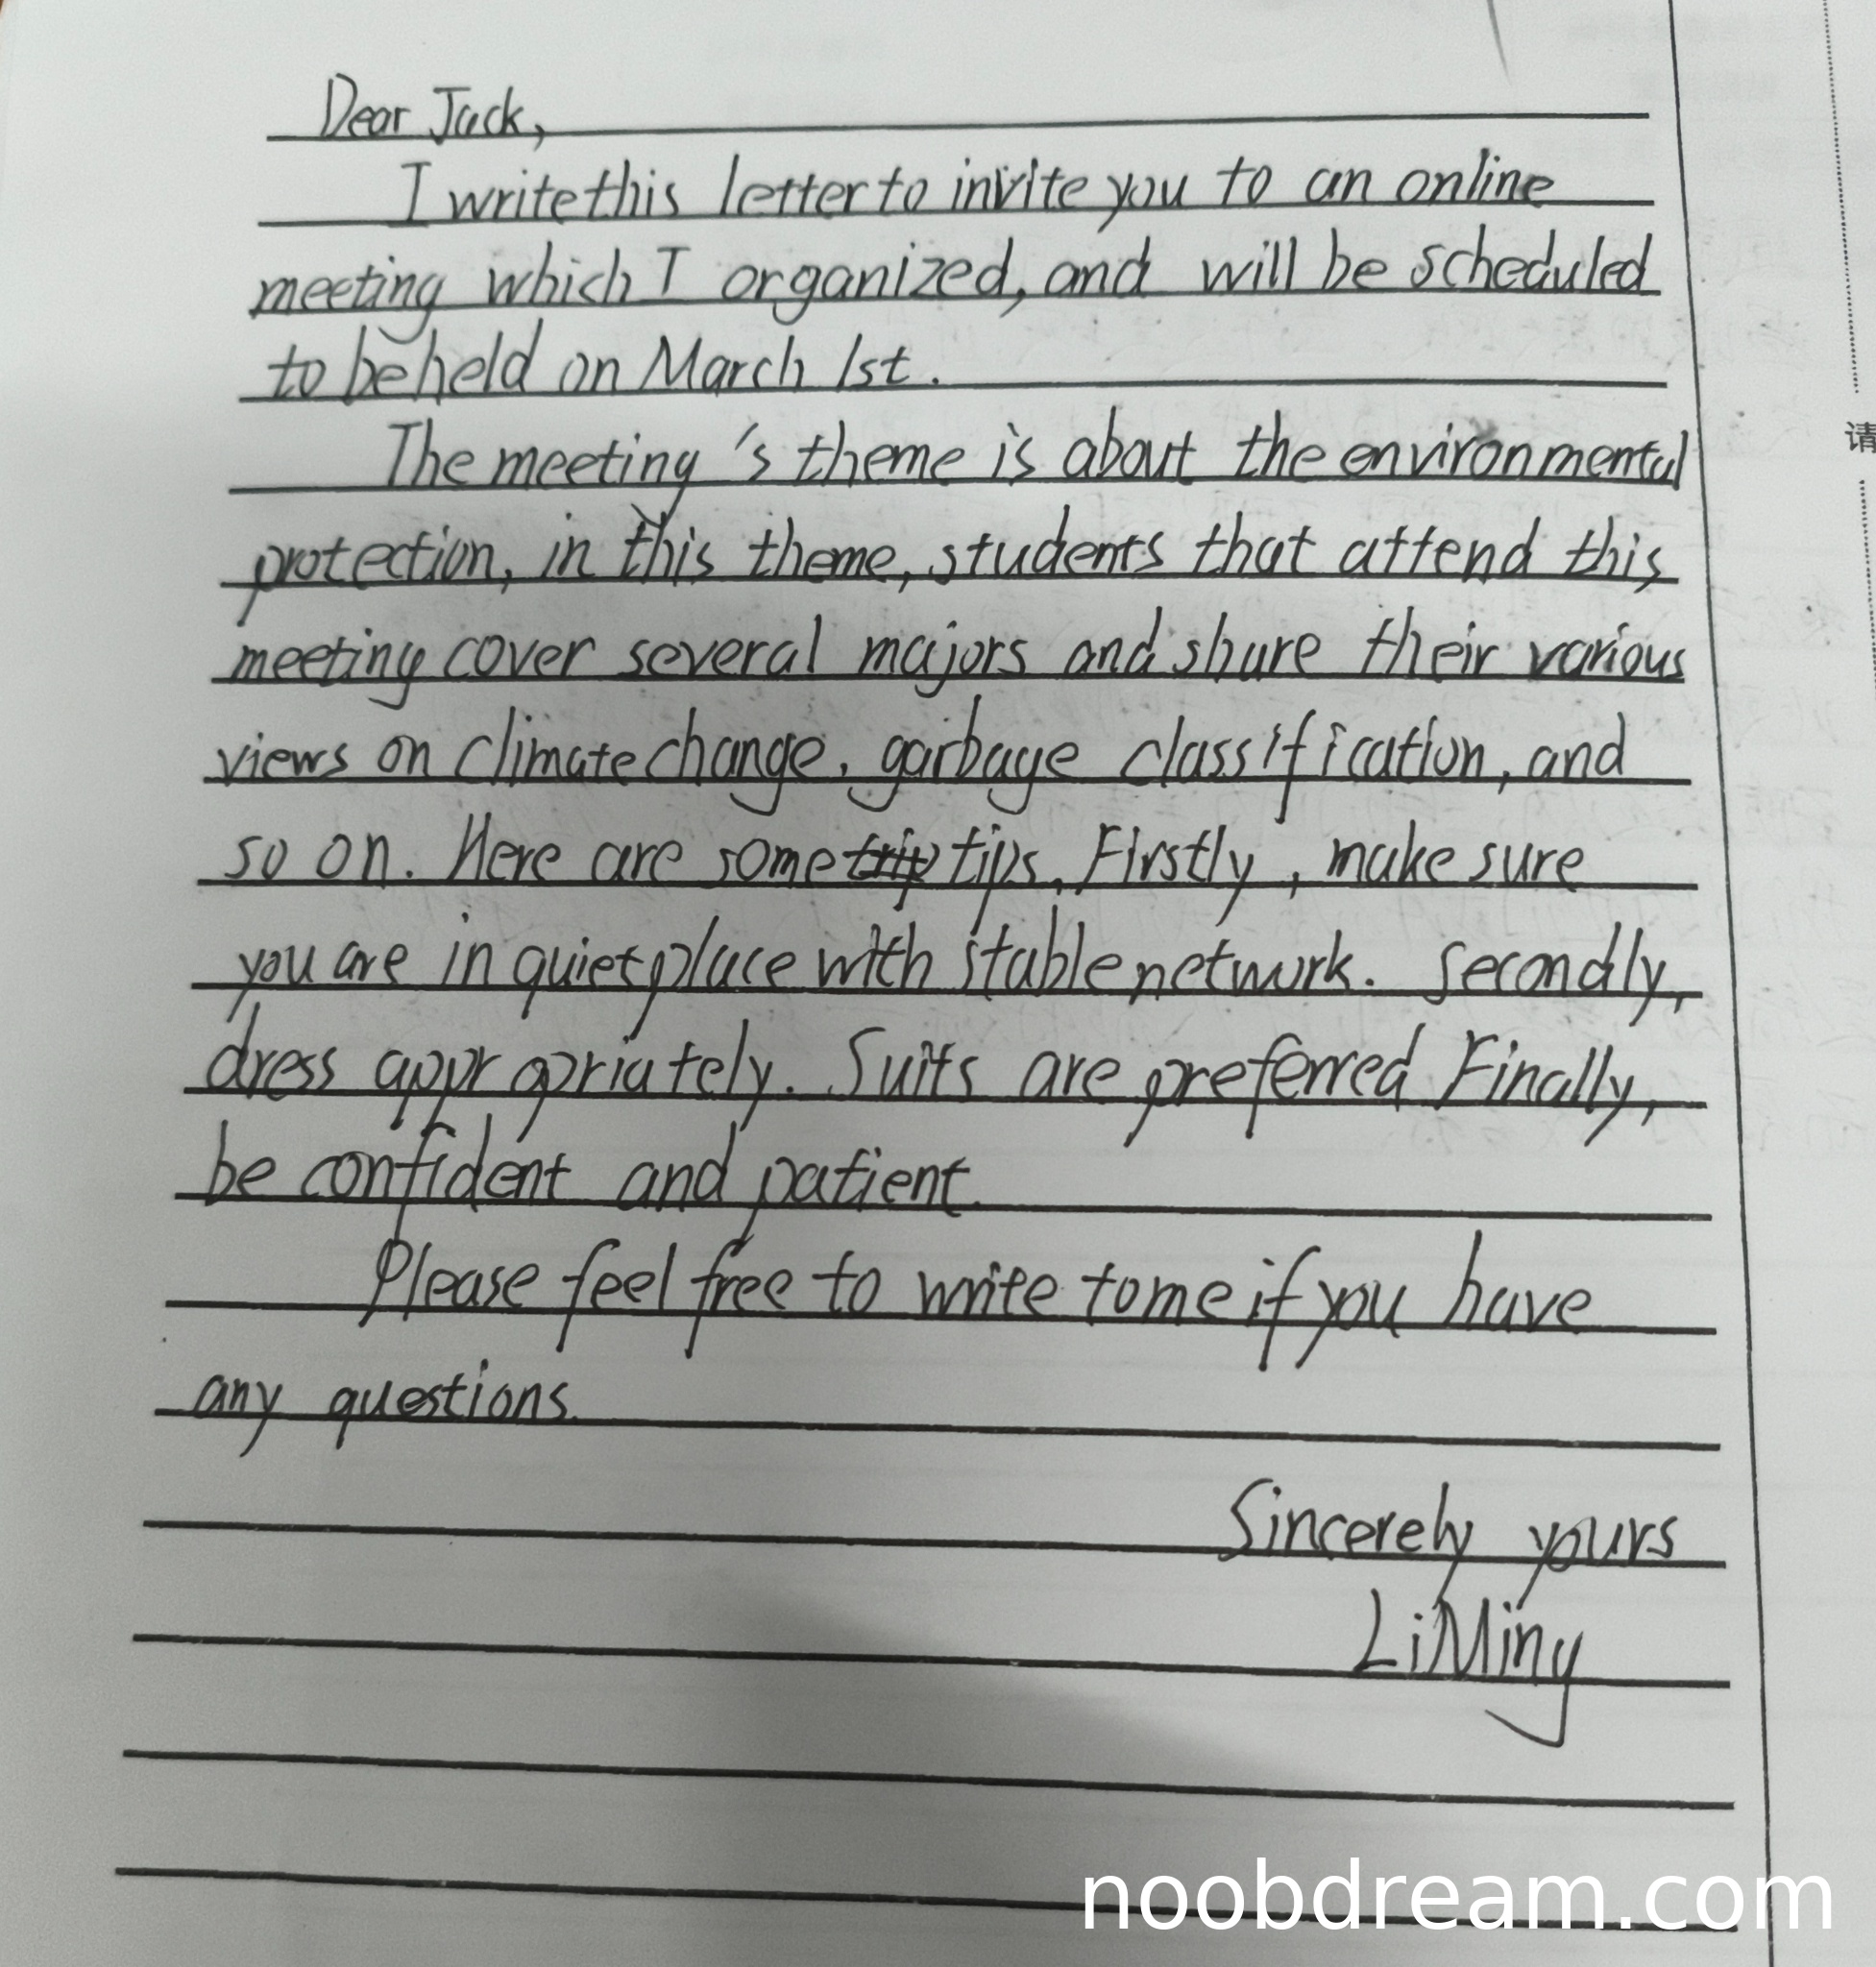 Dear Jack,
I write this letter to invite you to an online
meeting which I organized, and will be scheduled
to be held on March 1st.
The meeting's theme is about the environmental
protection, in this theme, students that attend this
meeting cover several majors and share their various
views on climate change, garbage classification, and
so on. Here are some trip tips. Firstly, make sure
you are in quiet place with stable network. Secondly,
dress appropriately. Suits are preferred Finally,
be confident and patient.
Please feel free to write to me if you have
any questions.
Sincerely yours
Li Ming
请
noobdream.com